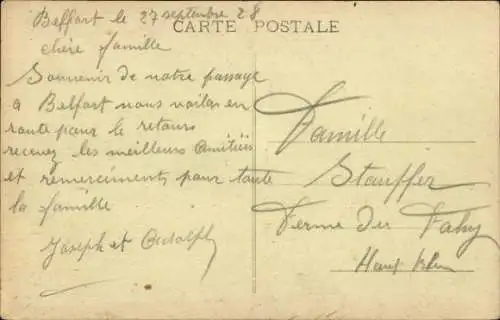 Belfort le 27 septembre 28
CARTE POSTALE
chère famille
Souvenir de notre passage
a Belfort nous voilas en
route pour le retours
recevez les meilleurs Amitiés
et remerciments pour toute
la famille
Joseph et Adolph
Famille
Stauffer
Ferme du Fahy
Haut Rhin